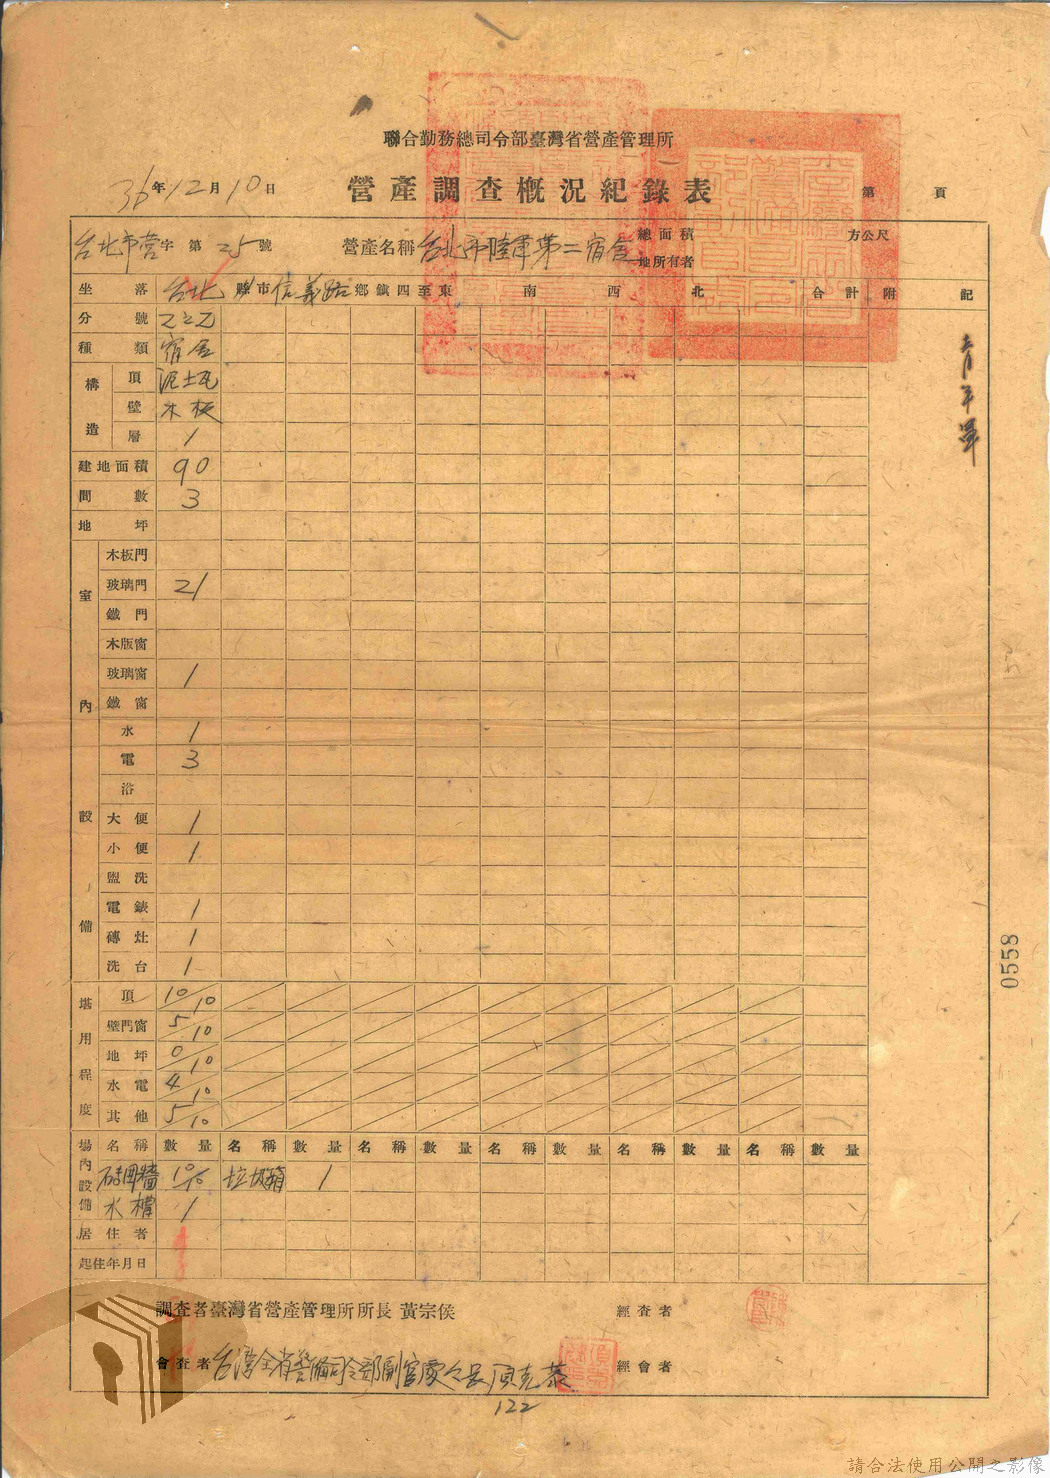 聯合勤務總司令部臺灣省營產管理所
36年12月10日 營產調查概況紀錄表 第 頁
台北市营字 第 25 號 營產名稱 台北市陸軍第二宿舍 總面積 方公尺
地所有者
坐落 台北 縣市 信義路 鄉鎮 四至東 南 西 北 合計 附記
分號
種類 宿舍
構造 頂 泥土瓦
壁 木板
層 1
建地面積 90
間數 3
地坪
室內設備 木板門
玻璃門 21
鐵門
木版窗
玻璃窗 1
鐵窗
水 1
電 3
浴
大便 1
小便 1
盥洗
電錶 1
磚灶 1
洗台 1
堪用程度 頂 10/10
壁門窗 5/10
地坪 0/10
水電 4/10
其他 5/10
場內設備 名稱 數量 名稱 數量 名稱 數量 名稱 數量 名稱 數量 名稱 數量
磚圍牆 10/10 垃圾箱 1
水槽 1
居住者
起住年月日
調查者臺灣省營產管理所所長 黃宗侯 經查者
會查者 台灣全省警備司令部副官處 經會者
122
0558
請合法使用公開之影像